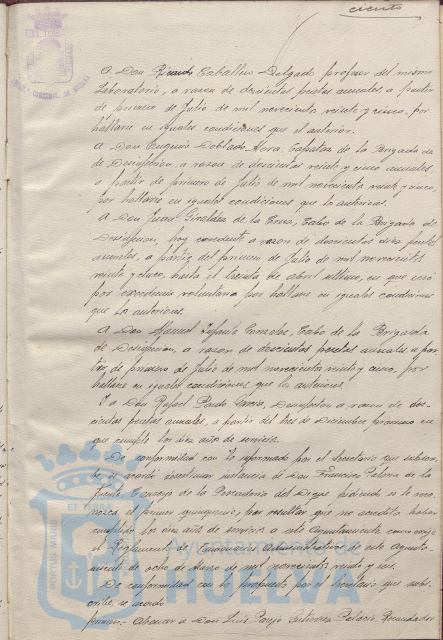 ciento
A Don Ricardo Caballero Delgado profesor del mismo
Laboratorio, a razon de doscientas pesetas anuales a partir
de primero de Julio de mil novecientos veinte y cinco, por
hallarse en iguales condiciones que el anterior.
A Don Eugenio Doblado Mora, Capataz de la Brigada de
de Desinfeccion, a razon de doscientas veinte y cinco anuales,
a partir de primero de Julio de mil novecientos veinte y cinco,
por hallarse en iguales condiciones que los anteriores.
A Don Juan Giraldez de la Cruz, Cabo de la Brigada de
Desinfeccion, hoy excedente a razon de doscientas pesetas
anuales, a partir del primero de Julio de mil novecientos
veinte y cinco, hasta el treinta de abril ultimo, en que cesó
por excedencia voluntaria por hallarse en iguales condiciones
que los anteriores.
A Don Manuel Infante Gonzalez, Cabo de la Brigada
de Desinfeccion, a razon de doscientas pesetas anuales a par-
tir de primero de Julio de mil novecientos veinte y cinco, por
hallarse en iguales condiciones que los anteriores.
Y a Don Rafael Pardo Garcia, Desinfector a razon de dos-
cientas pesetas anuales, a partir del tres de Diciembre proximo en
que cumple los diez años de servicio.
De conformidad con lo informado por el Secretario que suscri-
be, se acordó desestimar instancia de Don Francisco Palma de la
Fuente Conserje de la Pescaderia del Dique pidiendo se le reco-
nozca el primer quinquenio, por resultar que no acredita haber
cumplido los diez años de servicio a este Ayuntamiento como exige
el Reglamento de funcionarios administrativos de este Ayunta-
miento de ocho de Marzo de mil novecientos veinte y seis.
De conformidad con lo propuesto por el Secretario que subs-
cribe, se acordó
primero.- Abonar a Don Luis Parejo Gutierrez Palacio, Recaudador
PORTUS MARIS ET
Ayuntamiento de
HUELVA